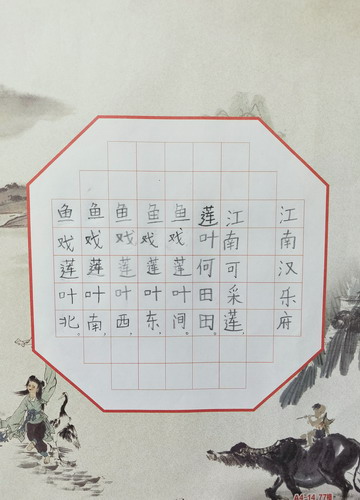 江南
汉乐府
江南可采莲，
莲叶何田田。
鱼戏莲叶间。
鱼戏莲叶东，
鱼戏莲叶西，
鱼戏莲叶南，
鱼戏莲叶北。
A4-14.77横